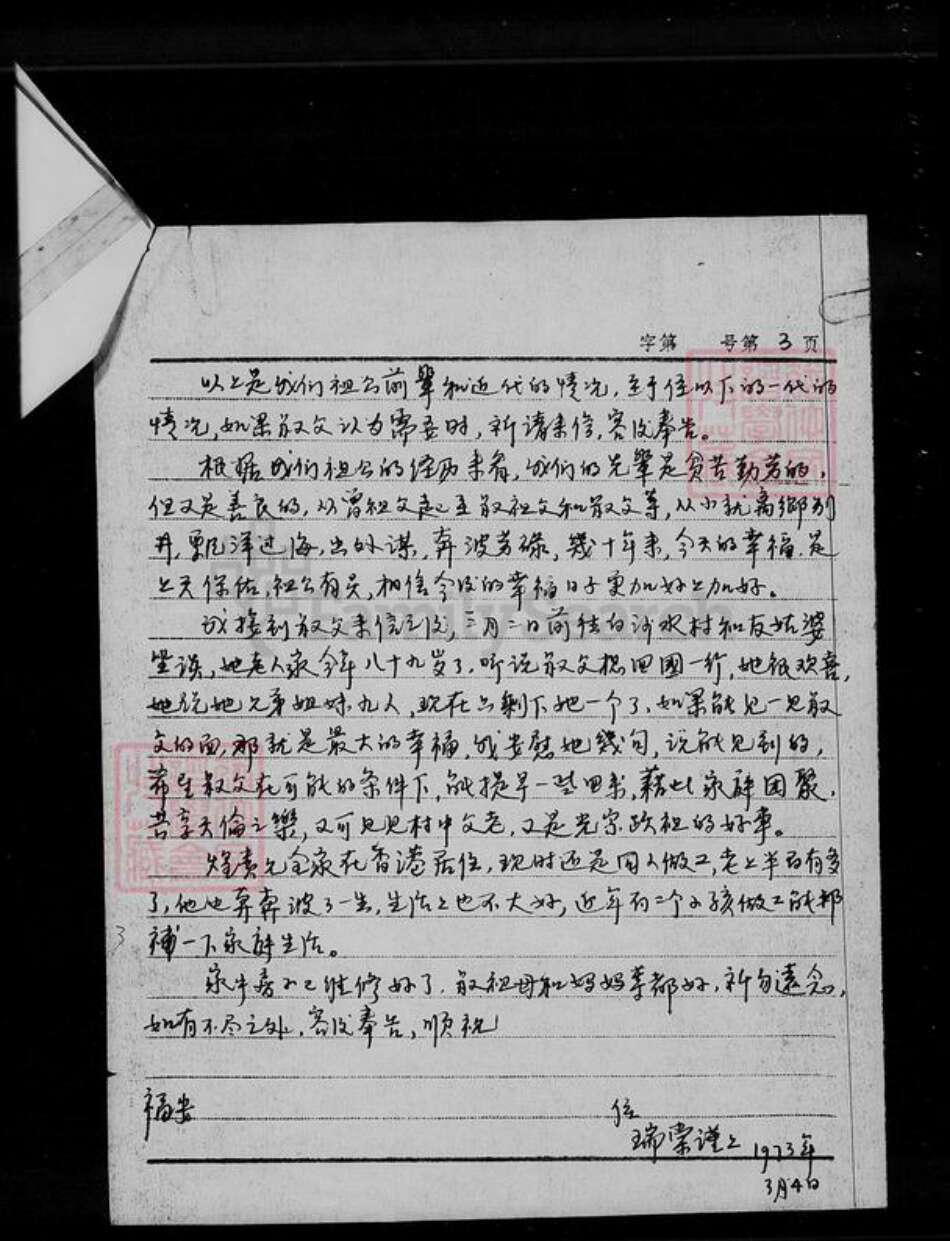 字第 号第 3 页
以上是我们祖公前辈和近代的情况,至于侄以下的一代的
情况,如果叔父认为需要时,祈请来信,容后奉告。
根据我们祖公的经历来看,我们的先辈是贫苦勤劳的,
但又是善良的,从曾祖父起至叔祖父和叔父等,从小就离鄉别
井,飘洋过海,出外谋,奔波劳碌,幾十年来,今天的幸福,是
上天保佑,祖公有灵,相信今后的幸福日子更加好上加好。
我接到叔父来信之后,三月二日前往白沙水村和友姑婆
坐谈,她老人家今年八十九岁了,听说叔父想回國一行,她很欢喜,
她说她兄弟姐妹九人,现在只剩下她一个了,如果能见一见叔
父的面,那就是最大的幸福,我安慰她幾句,说能见到的,
希望叔父在可能的条件下,能提早一些回来,藉此家庭团聚,
共享天倫之樂,又可见见村中父老,又是光宗耀祖的好事。
兄全家在香港居住,现时还是同人做工,老上半百有多
了,他也奔波了一生,生活上也不大好,近年有二个小孩做工能帮
補一下家庭生活。
3
家中房子已维修好了,叔祖母和妈妈等都好,祈勿遠念,
如有不尽之处,容后奉告,顺祝
福安
侄
瑞棠谨上 1973年
3月4日
FamilySearch